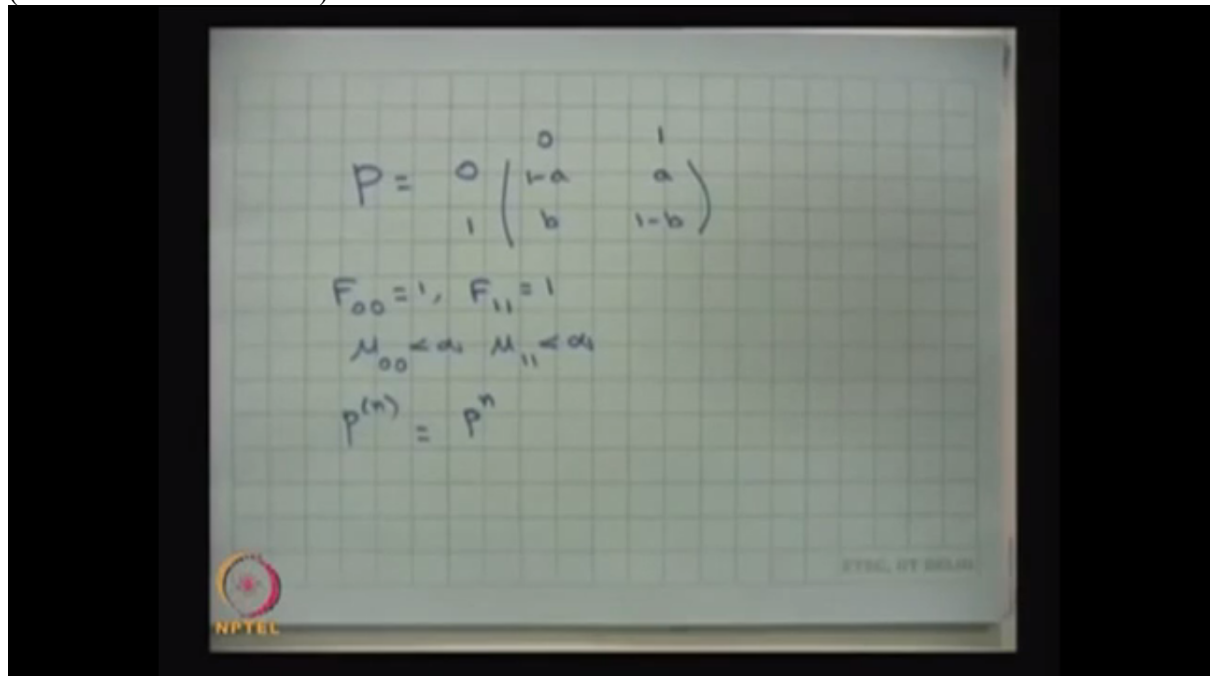 0 1
P = 0 ( 1-a a )
1 ( b 1-b )
F₀₀ = 1, F₁₁ = 1
μ₀₀ < ∞ μ₁₁ < ∞
P⁽ⁿ⁾ = Pⁿ
ETSC, IIT DELHI
NPTEL